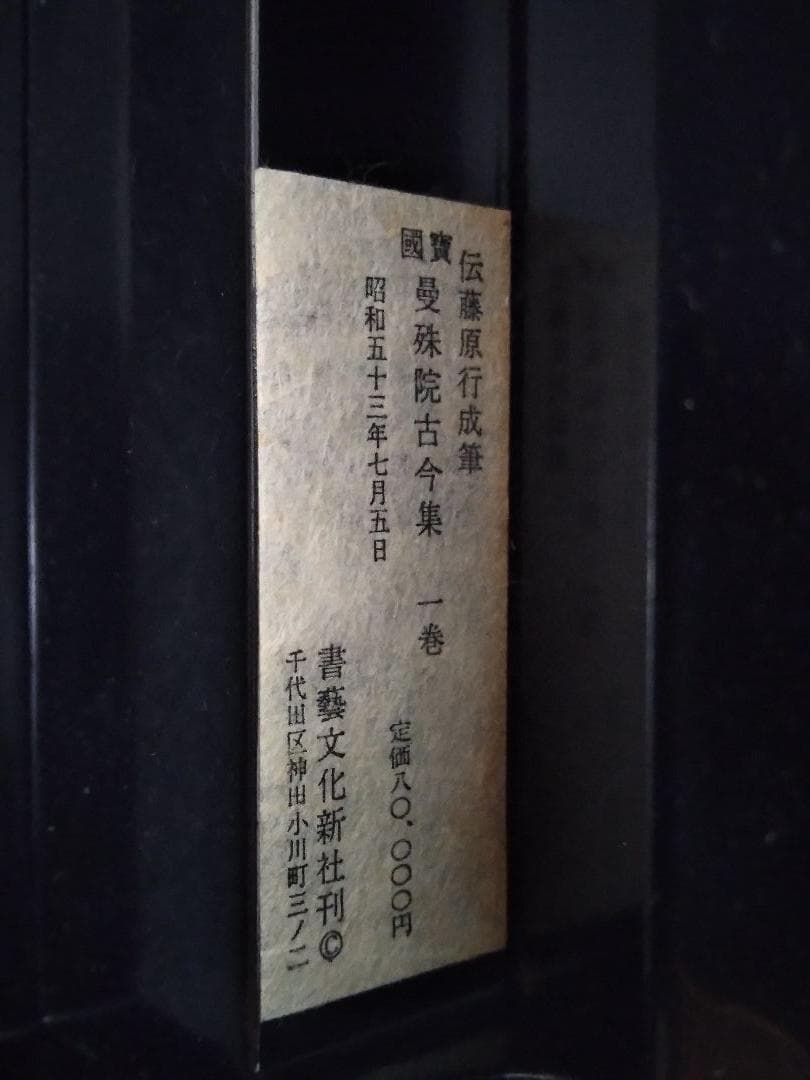 伝藤原行成筆
國寶
曼殊院古今集　一巻
定価八〇、〇〇〇円
昭和五十三年七月五日
書藝文化新社刊©
千代田区神田小川町三ノ二